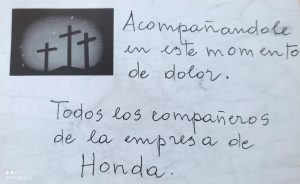 Acompañandole
en este momento
de dolor.
Todos los compañeros
de la empresa de
Honda.